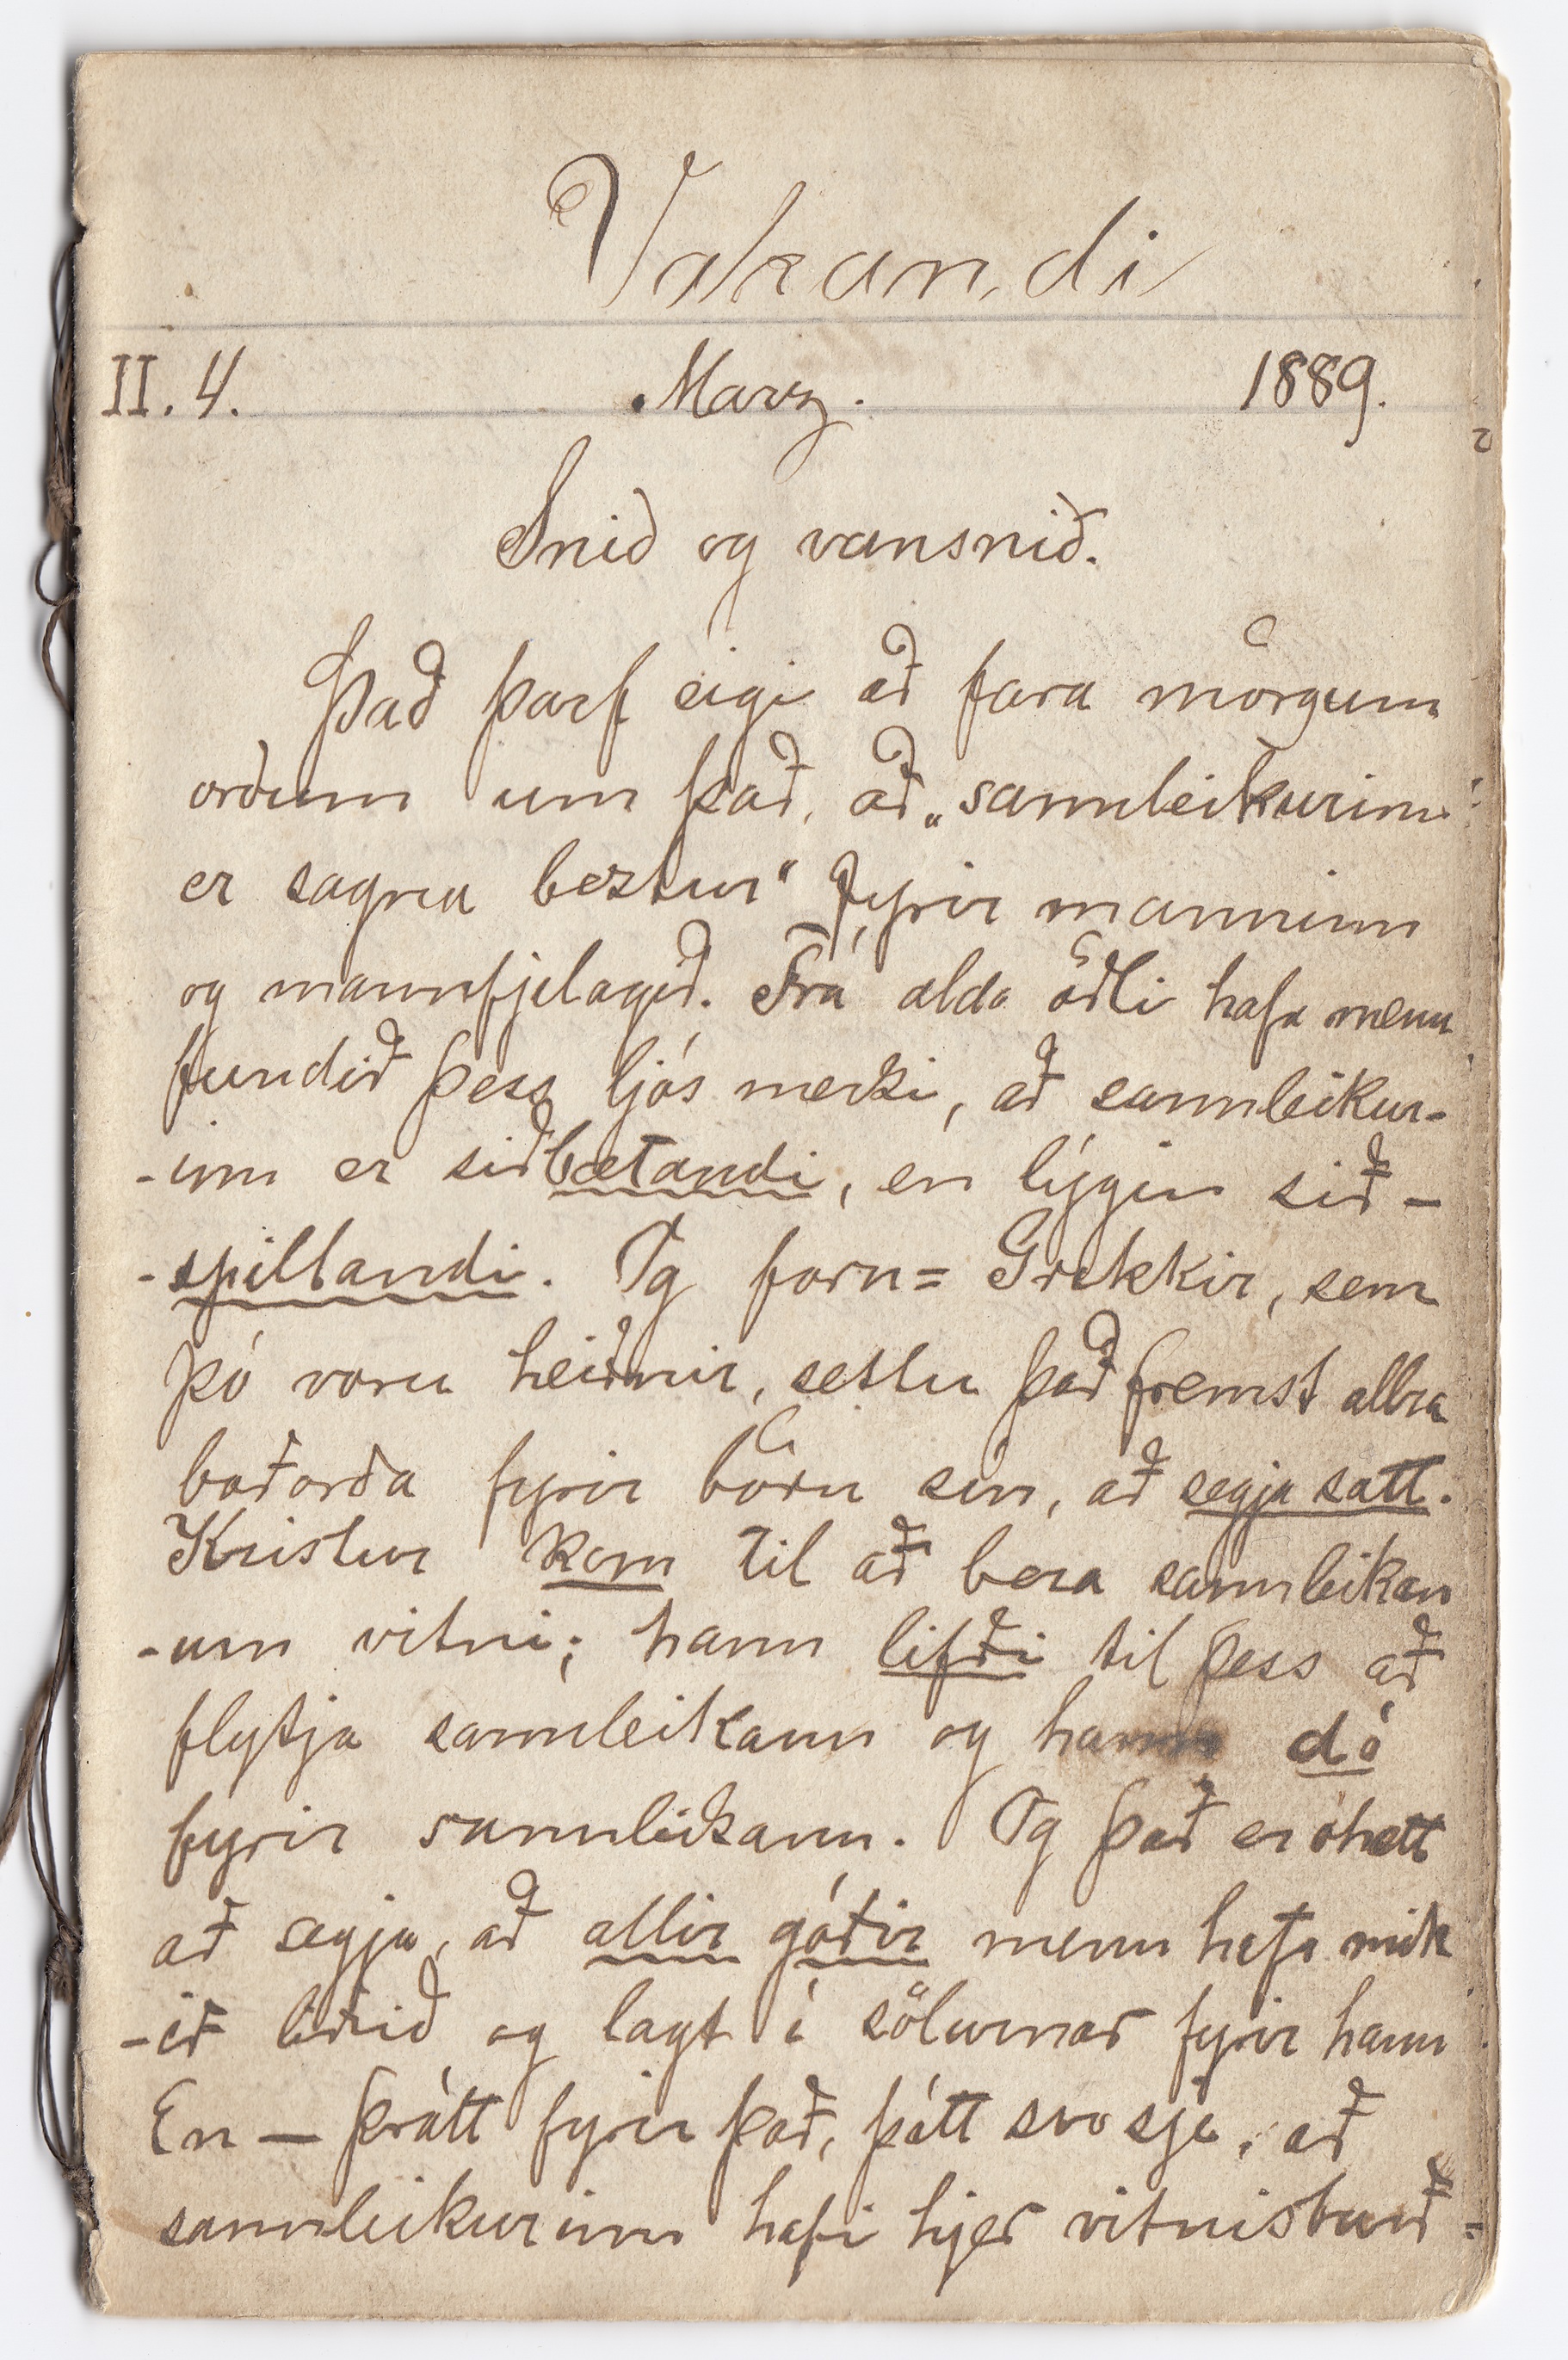 Vakandi
II. 4. Marz. 1889.
Snið og vansnið.
Það þarf eigi að fara mörgum
orðum um það, að „sannleikurinn
er sagna beztur“ fyrir manninn
og mannfjelagið. Frá alda öðli hafa menn
fundið þess ljós merki, að sannleikur-
-inn er siðbætandi, en lýgin sið-
-spillandi. Og forn= Grikkir, sem
þó voru heiðnir, settu það fremst allra
boðorða fyrir börn sín, að segja satt.
Kristur kom til að bera sannleikan
-um vitni; hann lifði til þess að
flytja sannleikann og hann dó
fyrir sannleikann. Og það er óhætt
að segja, að allir góðir menn hafa mik
-ið liðið og lagt í sölurnar fyrir hann
En — þrátt fyrir það, þótt svo sje, að
sannleikurinn hafi hjer vitnisburð=